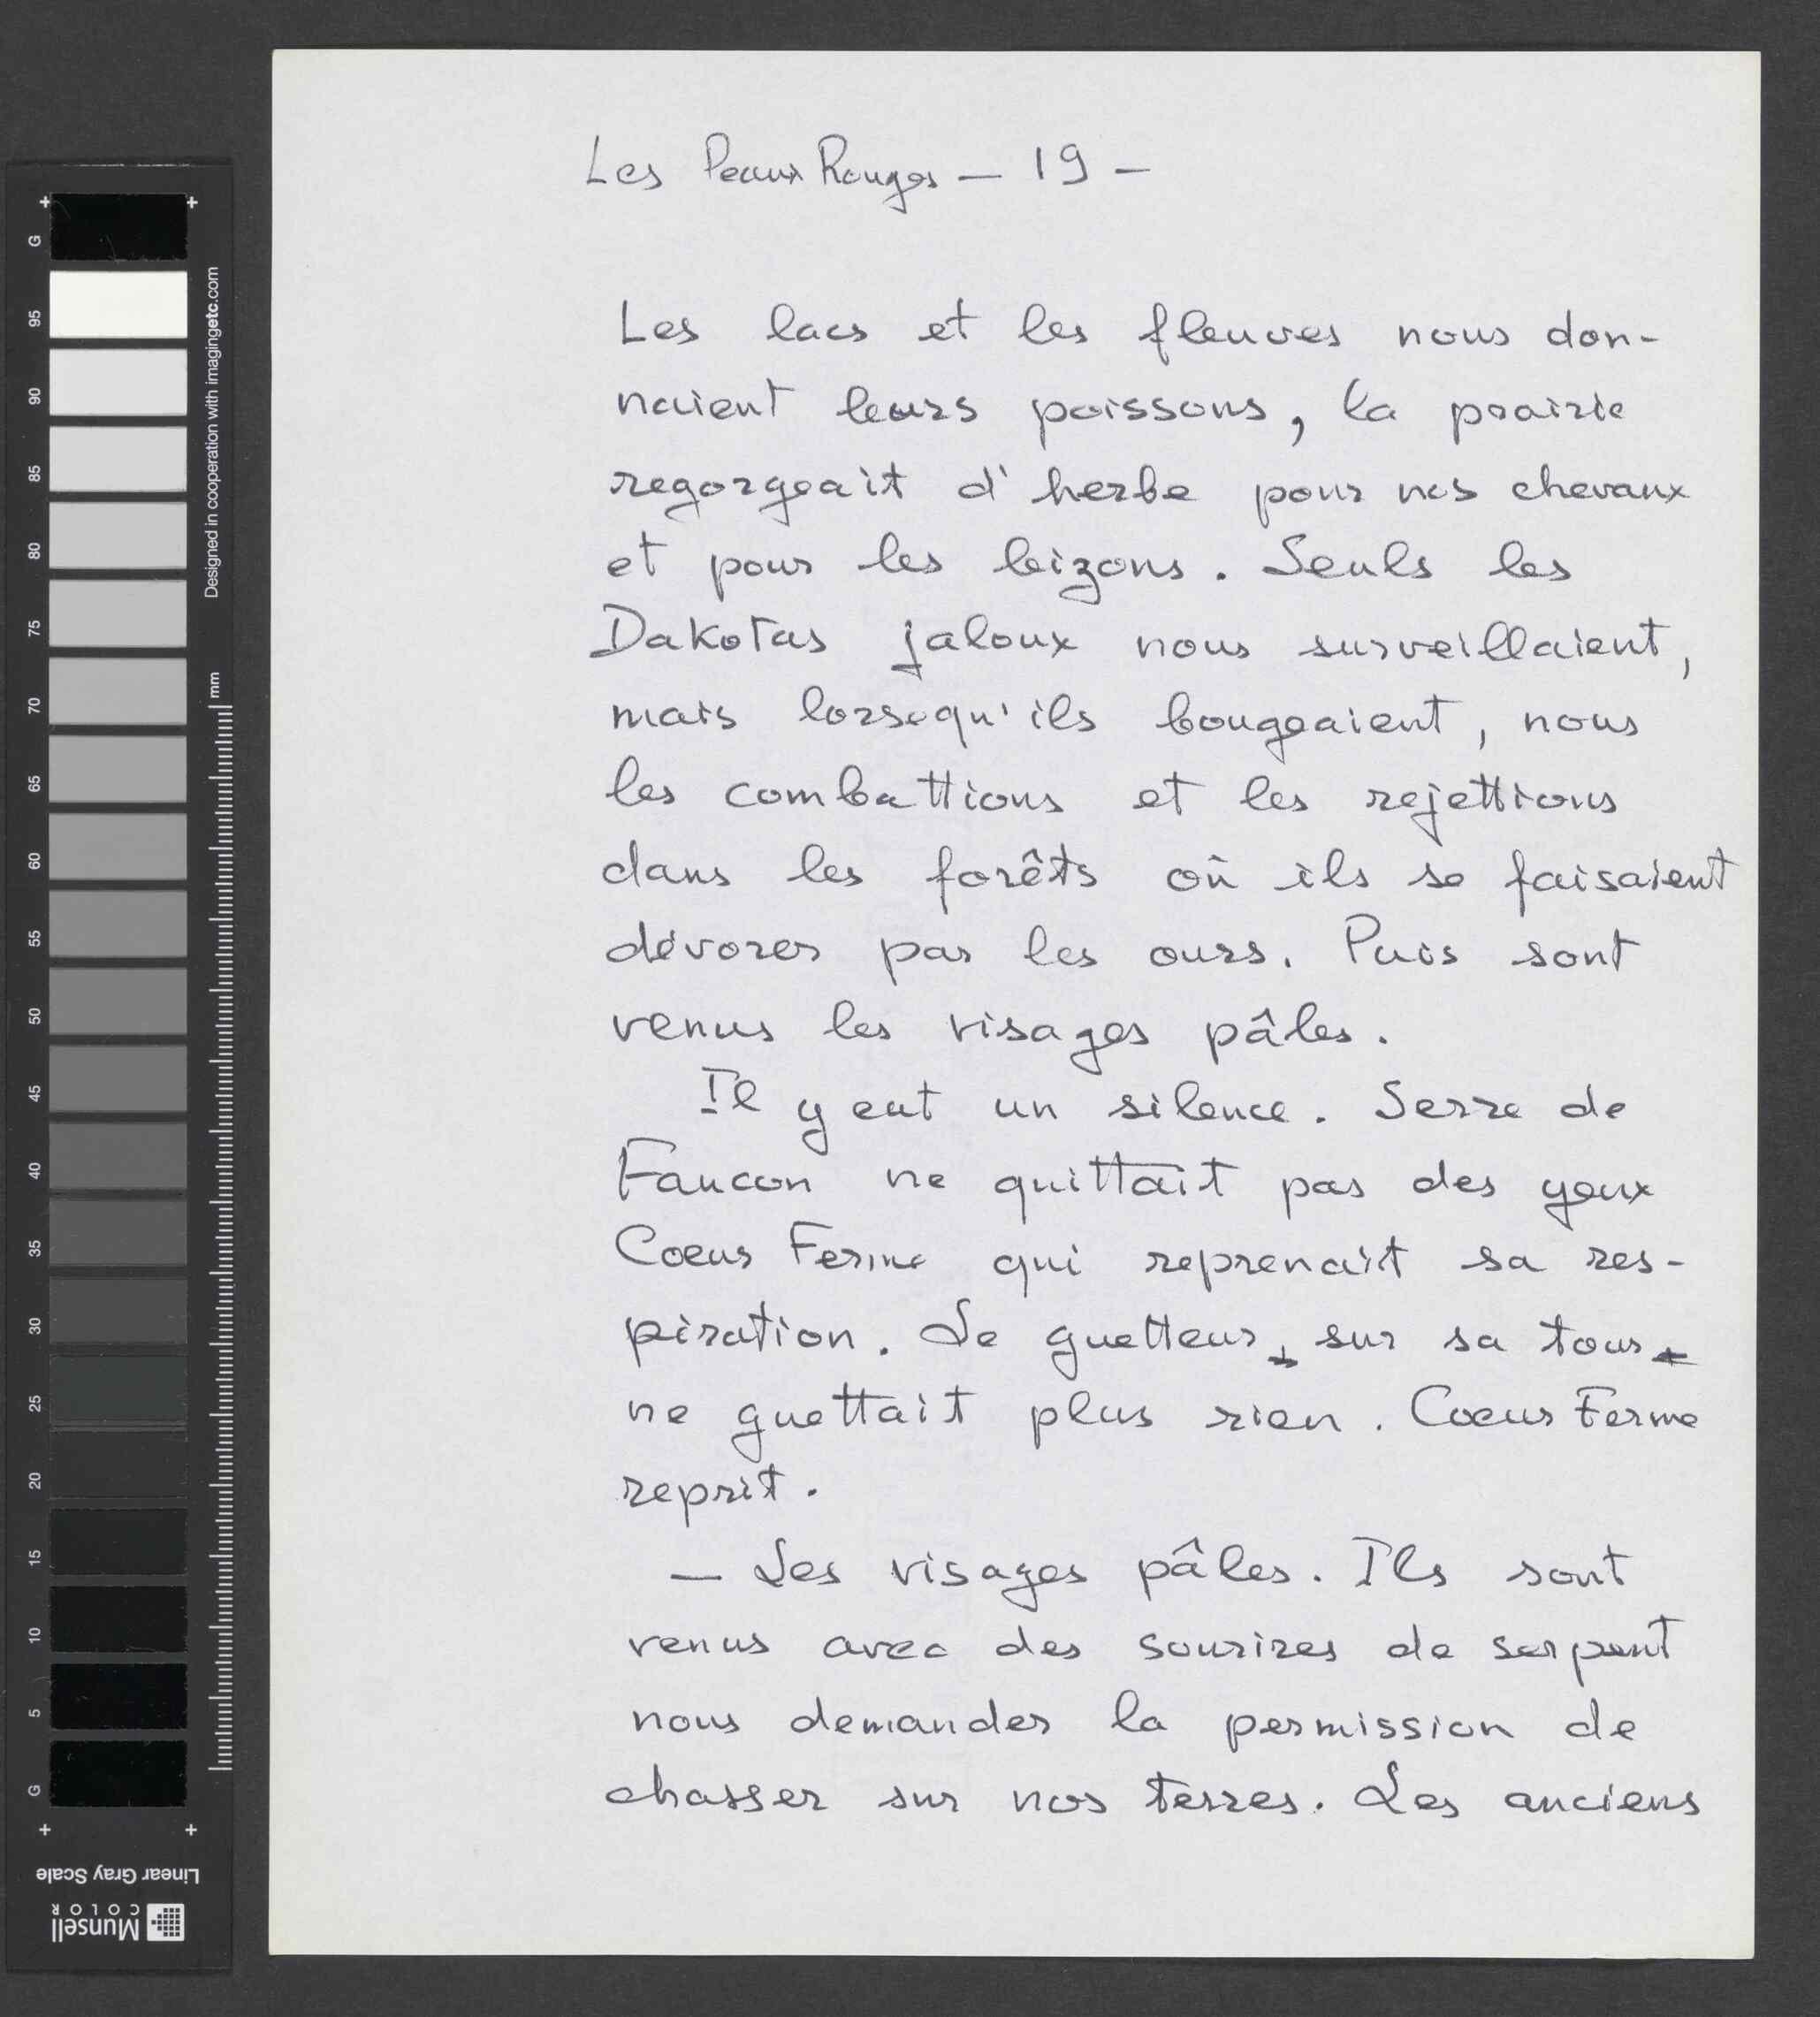 Les Peaux Rouges — 19 —
Les lacs et les fleuves nous don-
naient leurs poissons, la prairie
regorgeait d'herbe pour nos chevaux
et pour les bizons. Seuls les
Dakotas jaloux nous surveillaient,
mais lorsequ'ils bougeaient, nous
les combattions et les rejettions
dans les forêts où ils se faisaient
dévorer par les ours. Puis sont
venus les visages pâles.
Il y eut un silence. Serre de
Faucon ne quittait pas des yeux
Coeur Ferme qui reprenait sa res-
piration. Le guetteur, sur sa tour
ne guettait plus rien. Coeur Ferme
reprit.
— Les visages pâles. Ils sont
venus avec des sourires de serpent
nous demander la permission de
chasser sur nos terres. Les anciens
G
95
90
85
80
75
70
65
60
55
50
45
40
35
30
25
20
15
10
5
G
Designed in cooperation with imagingetc.com
mm
Linear Gray Scale
Munsell
COLOR